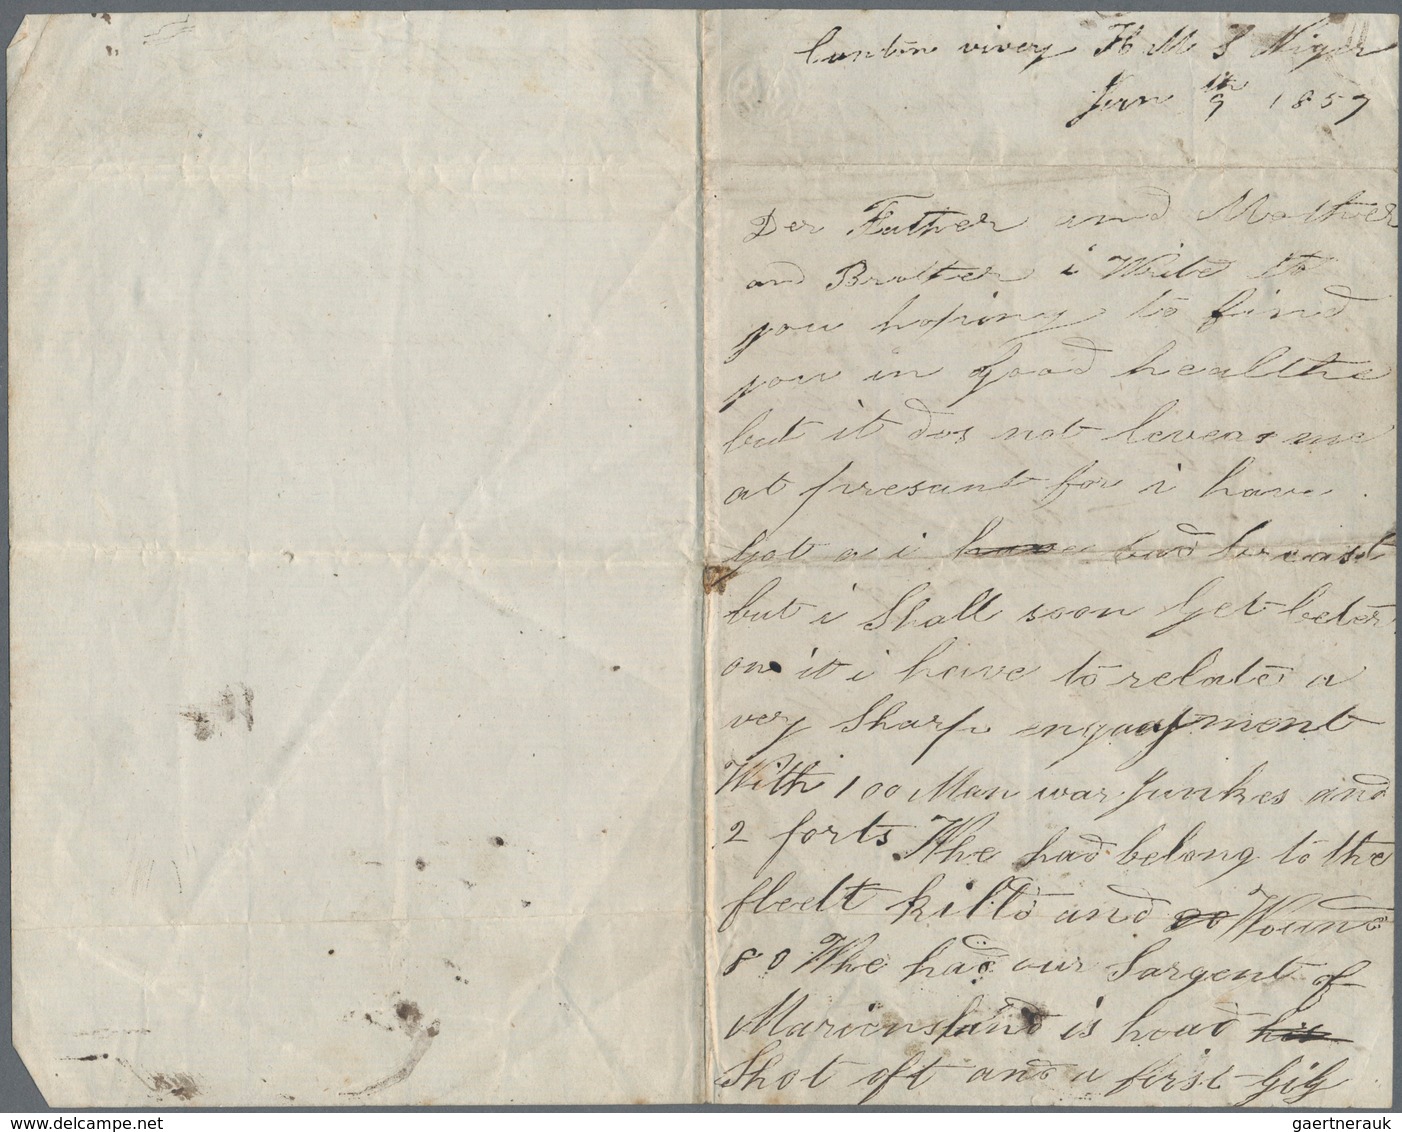 Canton river H M S Niger
Jun 9th 1857
Der Father and Mother
and Brother i Write to
you hoping to find
you in good healthe
but it dos not leveas me
at presant for i have
got a i have bad breast
but i Shall soon get beter
on it i have to relate a
very Sharp
With 100 Man war Junkes and
2 forts Whe had belong to the
fleelt killd and Wound
80 Whe had our Sargent of
Mariens and is head his
Shot oft and a first Gig
gaertnerauk @ delcampe.net